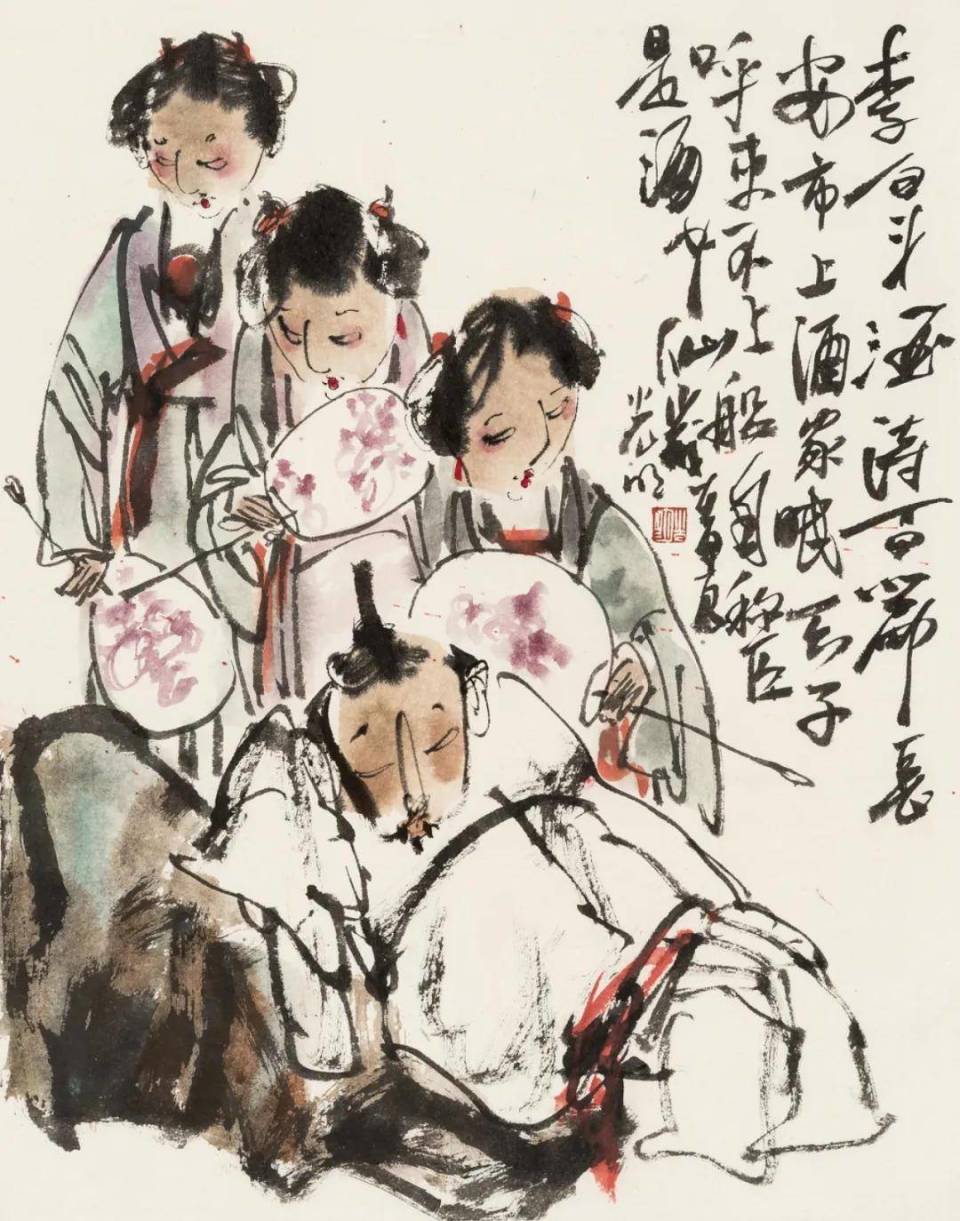 李白斗酒诗百篇长
安市上酒家眠天子
呼来不上船自称臣
是酒中仙
光明